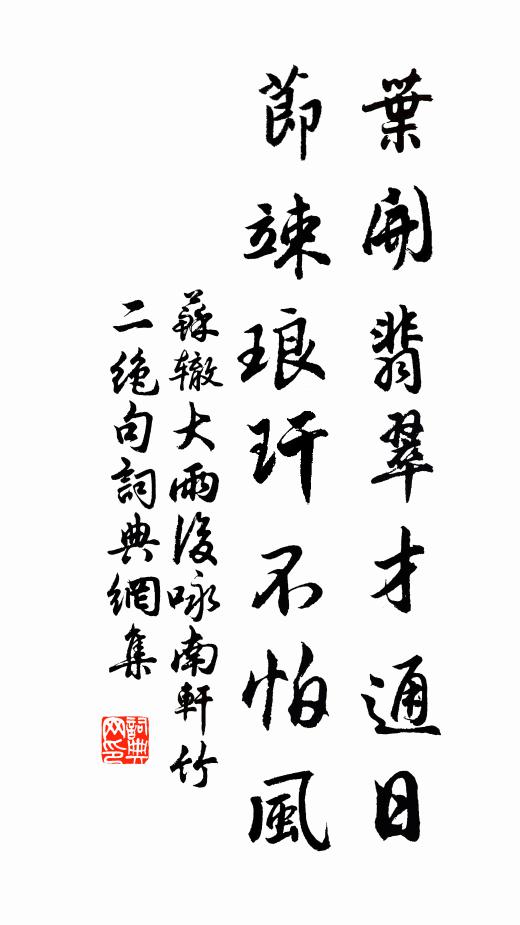 葉開翡翠才通日
節竦琅玕不怕風
蘇辙大雨後咏南軒竹
二绝句詞典網集
詞典网印